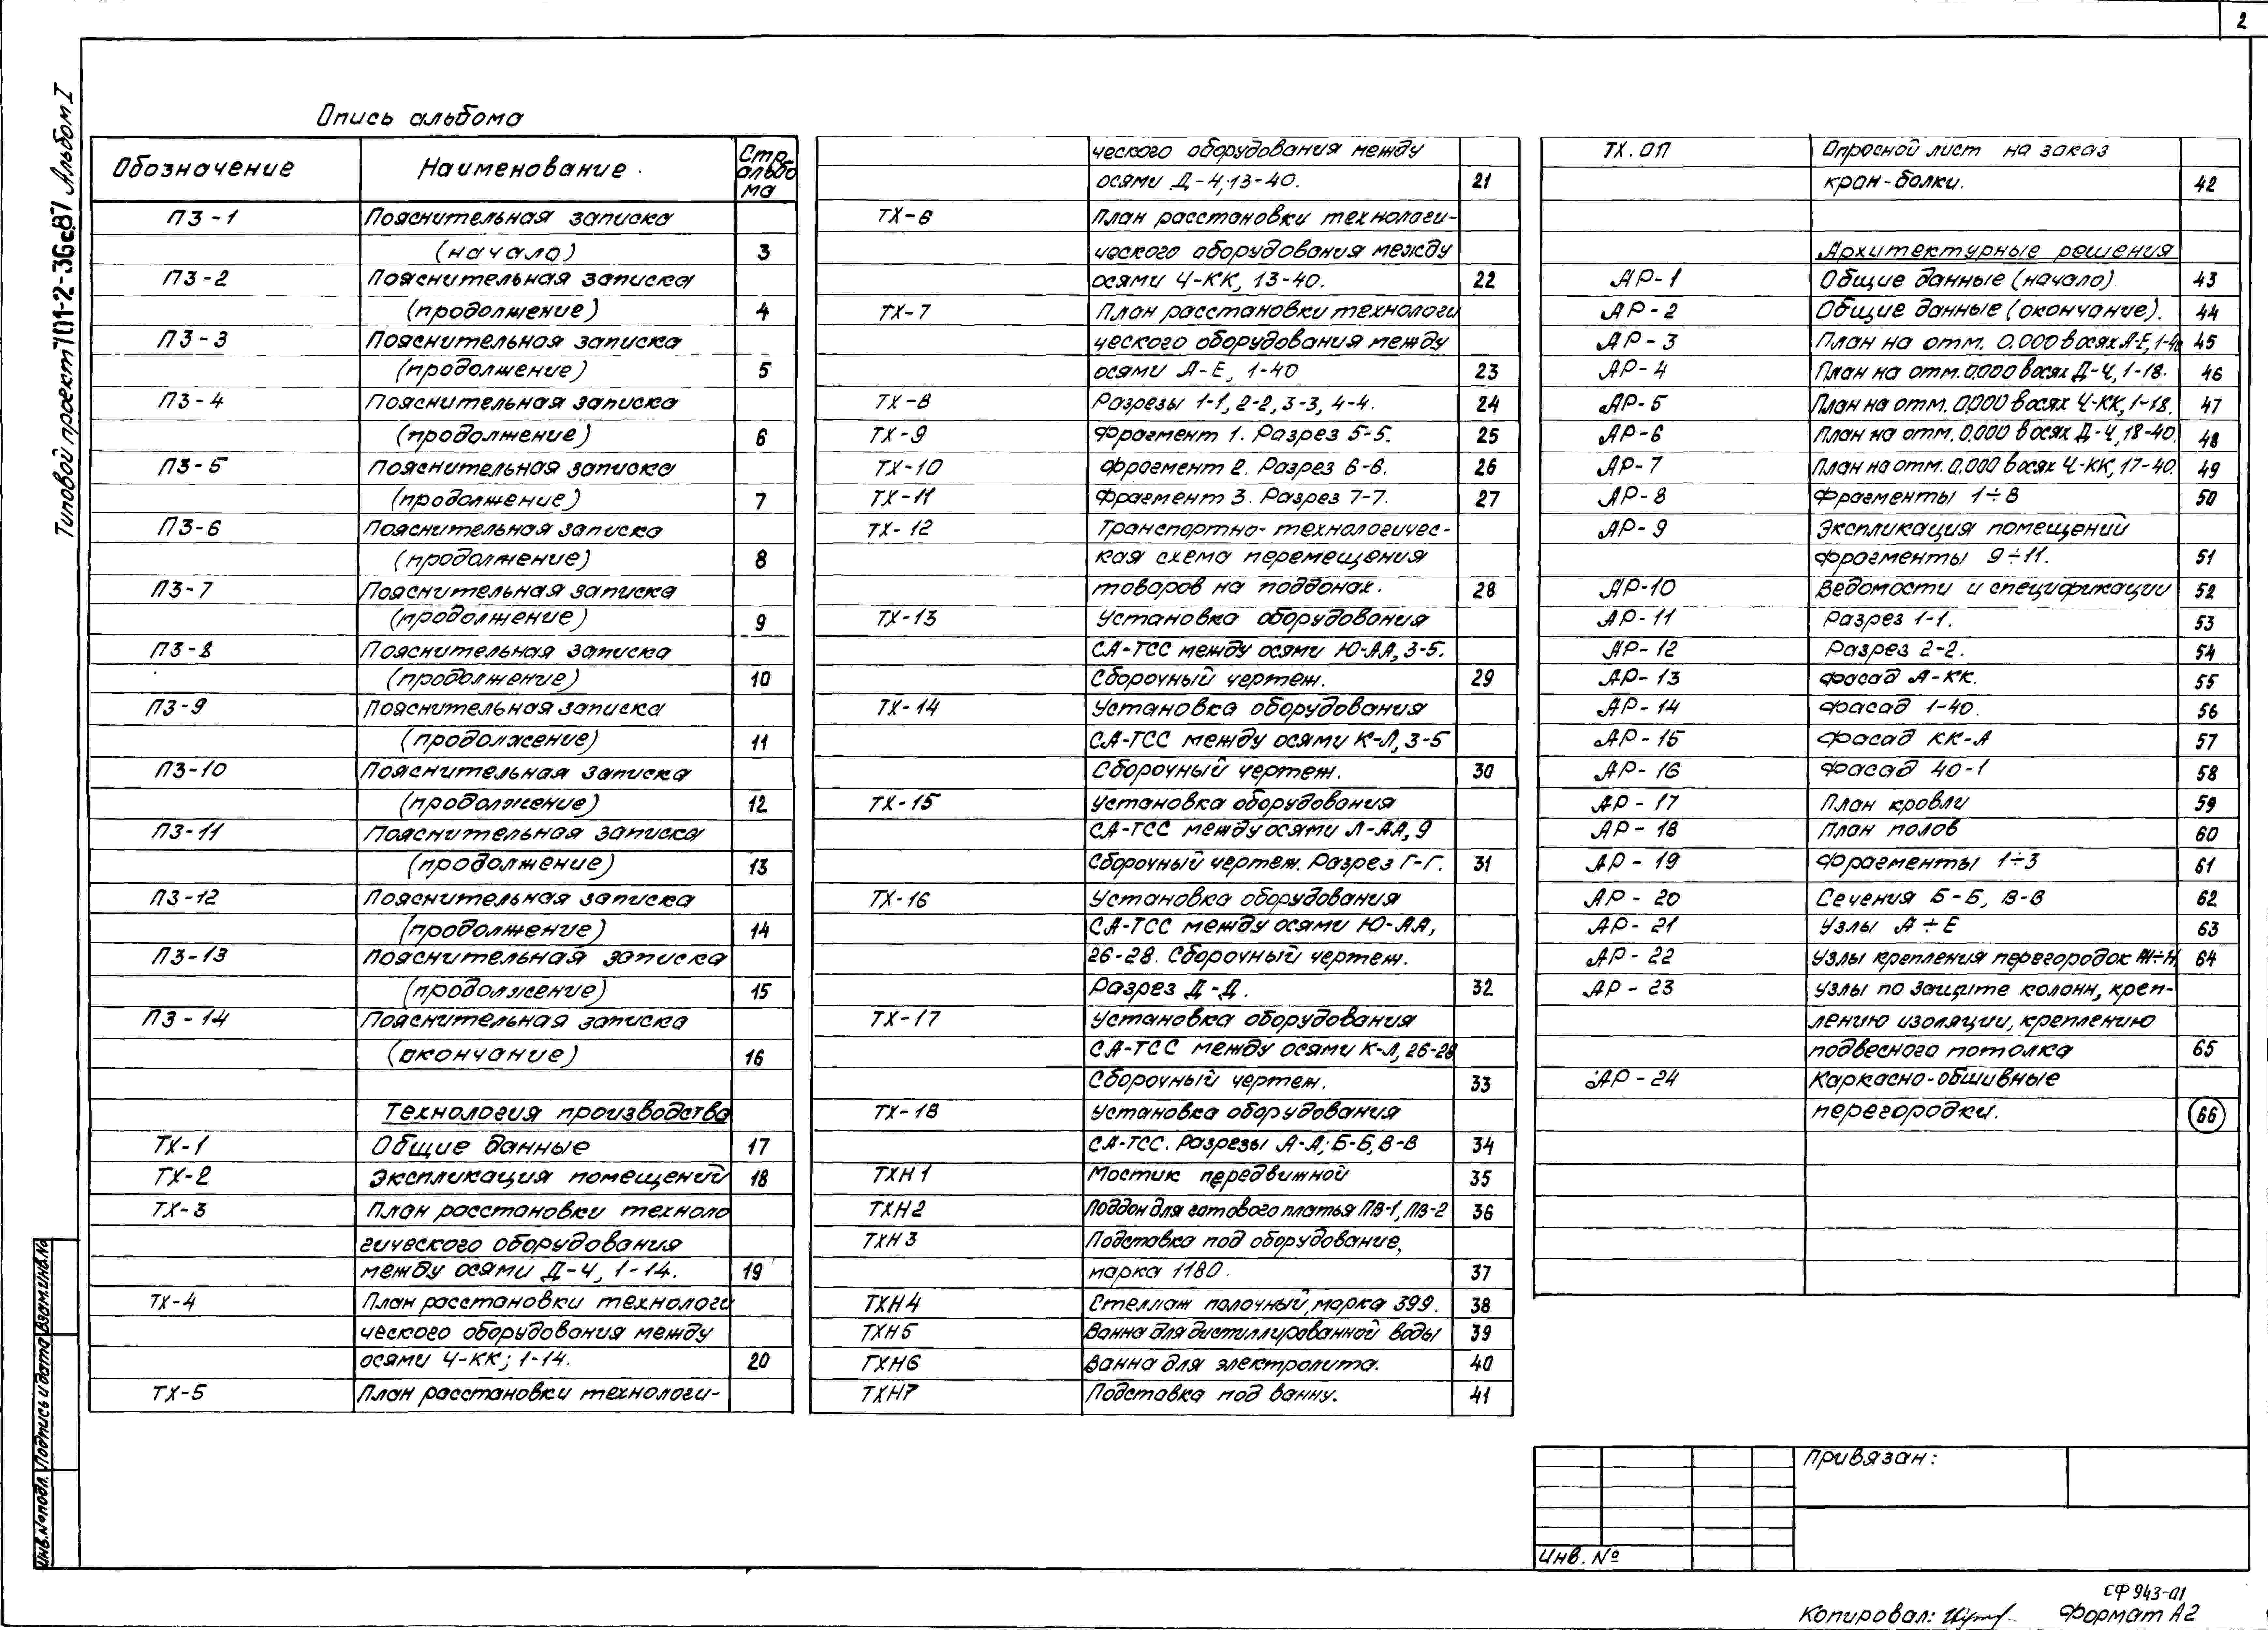 2
Типовой проект 701-2-36с.87 Альбом I
Опись альбома
Обозначение Наименование Стр. альбо ма
ПЗ-1 Пояснительная записка
(начало) 3
ПЗ-2 Пояснительная записка
(продолжение) 4
ПЗ-3 Пояснительная записка
(продолжение) 5
ПЗ-4 Пояснительная записка
(продолжение) 6
ПЗ-5 Пояснительная записка
(продолжение) 7
ПЗ-6 Пояснительная записка
(продолжение) 8
ПЗ-7 Пояснительная записка
(продолжение) 9
ПЗ-8 Пояснительная записка
(продолжение) 10
ПЗ-9 Пояснительная записка
(продолжение) 11
ПЗ-10 Пояснительная записка
(продолжение) 12
ПЗ-11 Пояснительная записка
(продолжение) 13
ПЗ-12 Пояснительная записка
(продолжение) 14
ПЗ-13 Пояснительная записка
(продолжение) 15
ПЗ-14 Пояснительная записка
(окончание) 16
Технология производства
ТХ-1 Общие данные 17
ТХ-2 Экспликация помещений 18
ТХ-3 План расстановки техноло
гического оборудования
между осями Д-Ч, 1-14. 19
ТХ-4 План расстановки технологи
ческого оборудования между
осями Ч-КК; 1-14. 20
ТХ-5 План расстановки технологи-
ческого оборудования между
осями Д-Ч, 13-40. 21
ТХ-6 План расстановки технологи-
ческого оборудования между
осями Ч-КК, 13-40. 22
ТХ-7 План расстановки технологи
ческого оборудования между
осями А-Е, 1-40 23
ТХ-8 Разрезы 1-1, 2-2, 3-3, 4-4. 24
ТХ-9 Фрагмент 1. Разрез 5-5. 25
ТХ-10 Фрагмент 2. Разрез 6-6. 26
ТХ-11 Фрагмент 3. Разрез 7-7. 27
ТХ-12 Транспортно-технологичес-
кая схема перемещения
товаров на поддонах. 28
ТХ-13 Установка оборудования
СА-ТСС между осями Ю-АА, 3-5.
Сборочный чертеж. 29
ТХ-14 Установка оборудования
СА-ТСС между осями К-Л, 3-5
Сборочный чертеж. 30
ТХ-15 Установка оборудования
СА-ТСС между осями Л-АА, 9
Сборочный чертеж. Разрез Г-Г. 31
ТХ-16 Установка оборудования
СА-ТСС между осями Ю-АА,
26-28. Сборочный чертеж.
Разрез Д-Д. 32
ТХ-17 Установка оборудования
СА-ТСС между осями К-Л, 26-28
Сборочный чертеж. 33
ТХ-18 Установка оборудования
СА-ТСС. Разрезы А-А; Б-Б, В-В 34
ТХН1 Мостик передвижной 35
ТХН2 Поддон для готового платья ПВ-1, ПВ-2 36
ТХН3 Подставка под оборудование,
марка 1180. 37
ТХН4 Стеллаж полочный, марка 399. 38
ТХН5 Ванна для дистиллированной воды 39
ТХН6 Ванна для электролита. 40
ТХН7 Подставка под ванну. 41
ТХ.ОП Опросной лист на заказ
кран-балки. 42
Архитектурные решения
АР-1 Общие данные (начало). 43
АР-2 Общие данные (окончание). 44
АР-3 План на отм. 0.000 в осях А-Е, 1-40 45
АР-4 План на отм. 0.000 в осях Д-Ч, 1-18. 46
АР-5 План на отм. 0.000 в осях Ч-КК, 1-18. 47
АР-6 План на отм. 0.000 в осях Д-Ч, 18-40. 48
АР-7 План на отм. 0.000 в осях Ч-КК, 17-40. 49
АР-8 Фрагменты 1÷8 50
АР-9 Экспликация помещений
фрагменты 9÷11. 51
АР-10 Ведомости и спецификации 52
АР-11 Разрез 1-1. 53
АР-12 Разрез 2-2. 54
АР-13 Фасад А-КК. 55
АР-14 Фасад 1-40. 56
АР-15 Фасад КК-А 57
АР-16 Фасад 40-1 58
АР-17 План кровли 59
АР-18 План полов 60
АР-19 Фрагменты 1÷3 61
АР-20 Сечения Б-Б, В-В 62
АР-21 Узлы А÷Е 63
АР-22 Узлы крепления перегородок 64
АР-23 Узлы по защите колонн, креп-
лению изоляции, креплению
подвесного потолка 65
АР-24 Каркасно-обшивные
перегородки. 66
Привязан:
Инв. №
Инв.№подл. Подпись и дата Взам.инв.№
СФ 943-01
Копировал: Формат А2